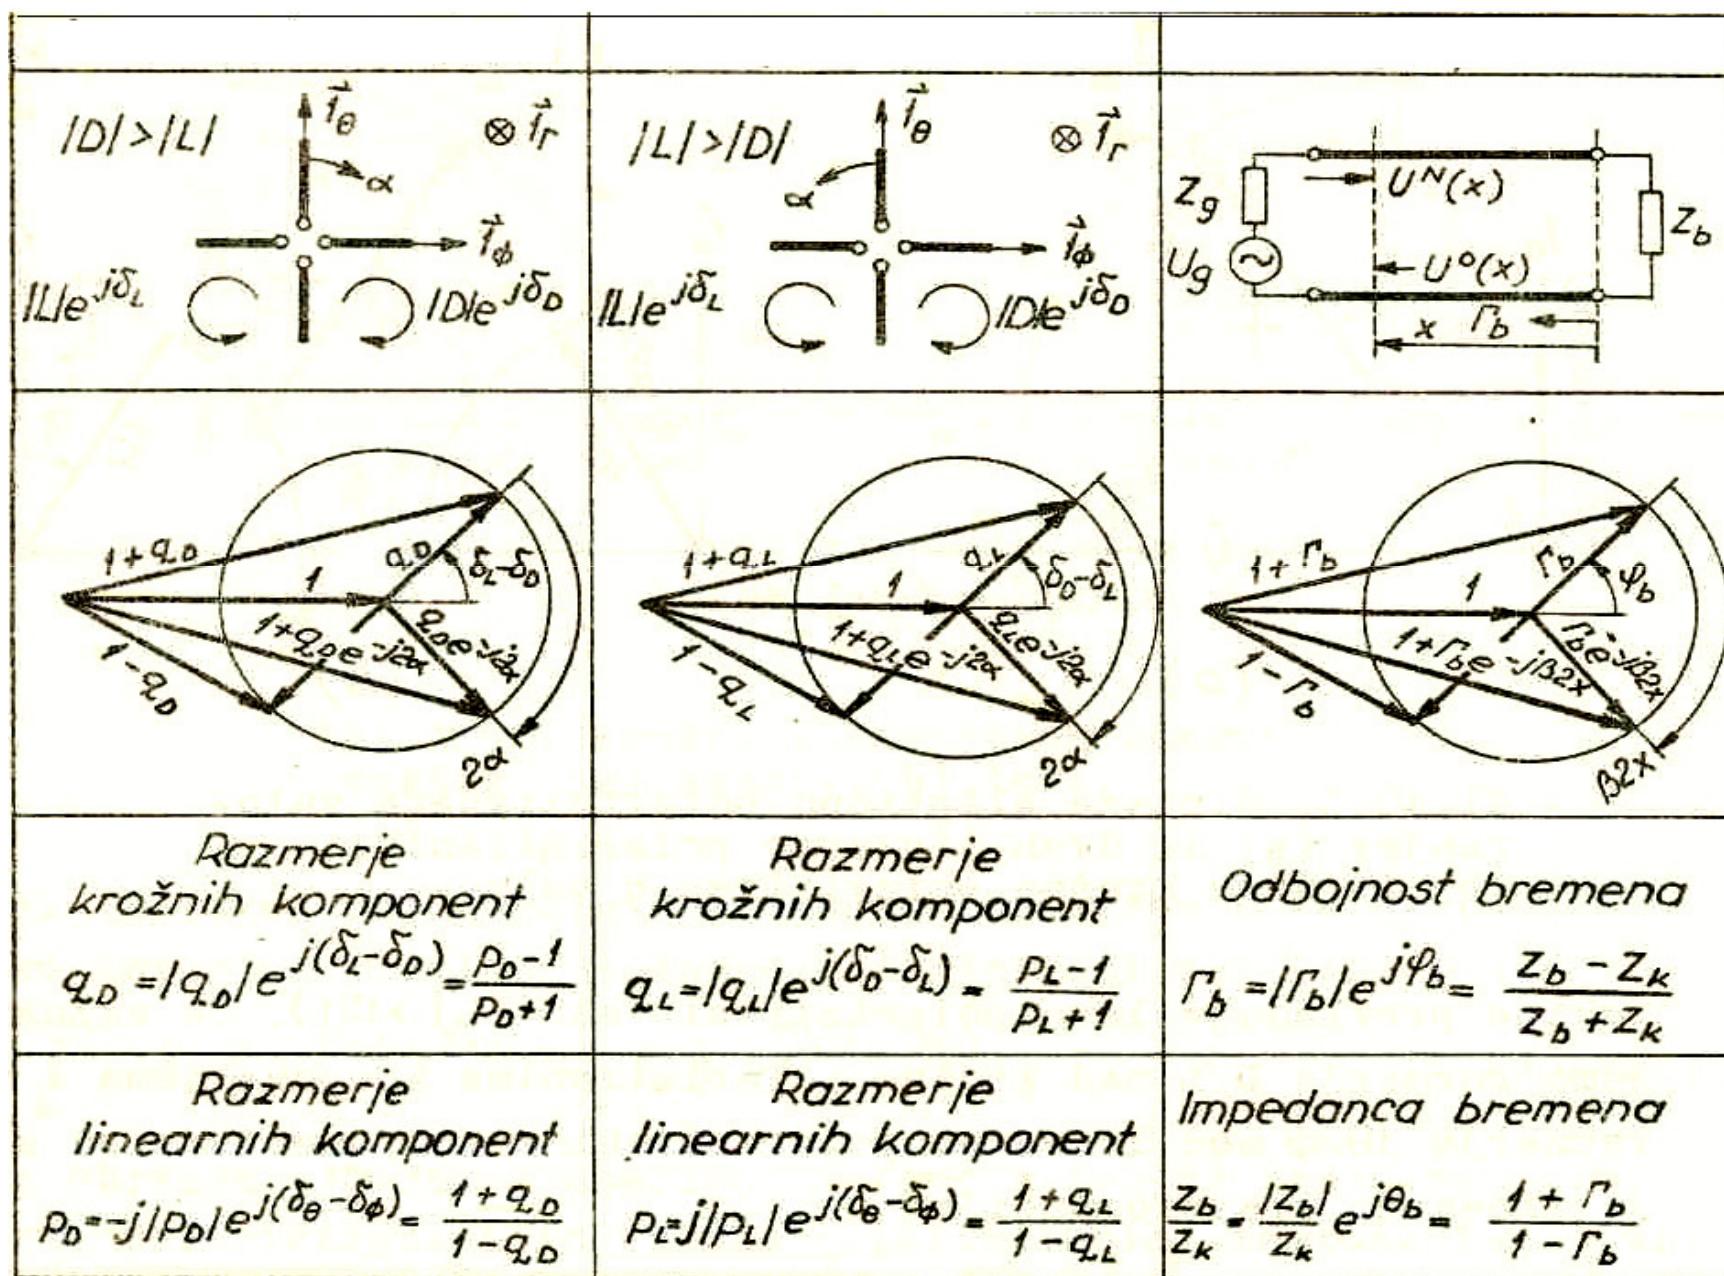 |D|>|L|
1⃗θ
⊗ 1⃗r
α
1⃗ϕ
|L|e^jδL
|D|e^jδD
|L|>|D|
1⃗θ
⊗ 1⃗r
α
1⃗ϕ
|L|e^jδL
|D|e^jδD
Zg
Ug
U^N(x)
U^o(x)
x
Γb
Zb
1+qD
qD
δL-δD
1
1+qDe^-j2α
qDe^-j2α
1-qD
2α
1+qL
qL
δD-δL
1
1+qLe^-j2α
qLe^-j2α
1-qL
2α
1+Γb
Γb
φb
1
1+Γbe^-jβ2x
Γbe^-jβ2x
1-Γb
β2x
Razmerje
krožnih komponent
qD=|qD|e^j(δL-δD)=(pD-1)/(pD+1)
Razmerje
krožnih komponent
qL=|qL|e^j(δD-δL)=(pL-1)/(pL+1)
Odbojnost bremena
Γb=|Γb|e^jφb=(Zb-Zk)/(Zb+Zk)
Razmerje
linearnih komponent
pD=-j|pD|e^j(δθ-δϕ)=(1+qD)/(1-qD)
Razmerje
linearnih komponent
pL=j|pL|e^j(δθ-δϕ)=(1+qL)/(1-qL)
Impedanca bremena
Zb/Zk=|Zb|/Zk e^jθb=(1+Γb)/(1-Γb)